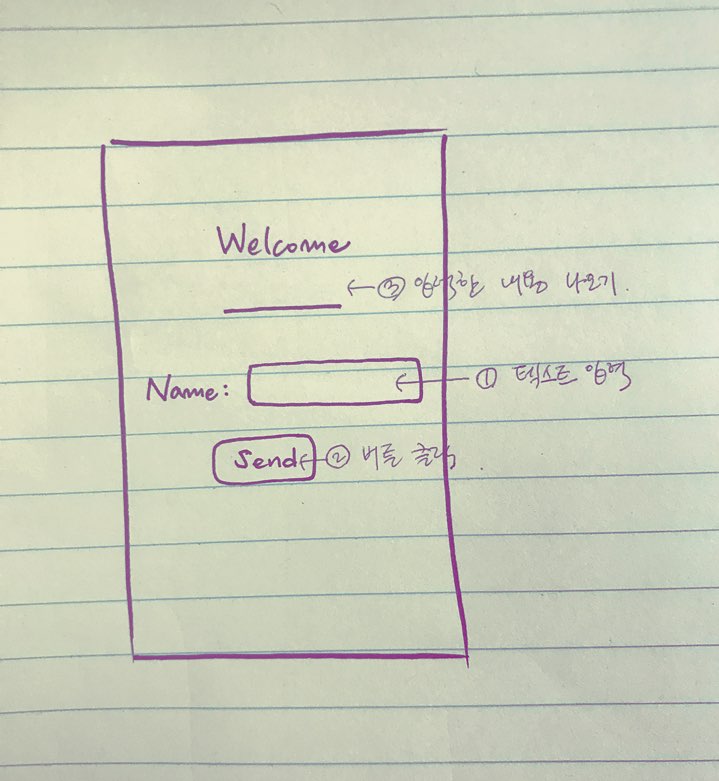 Welcome
③ 입력한 내용 나오기.
Name:
① 텍스트 입력
Send
② 버튼 클릭.